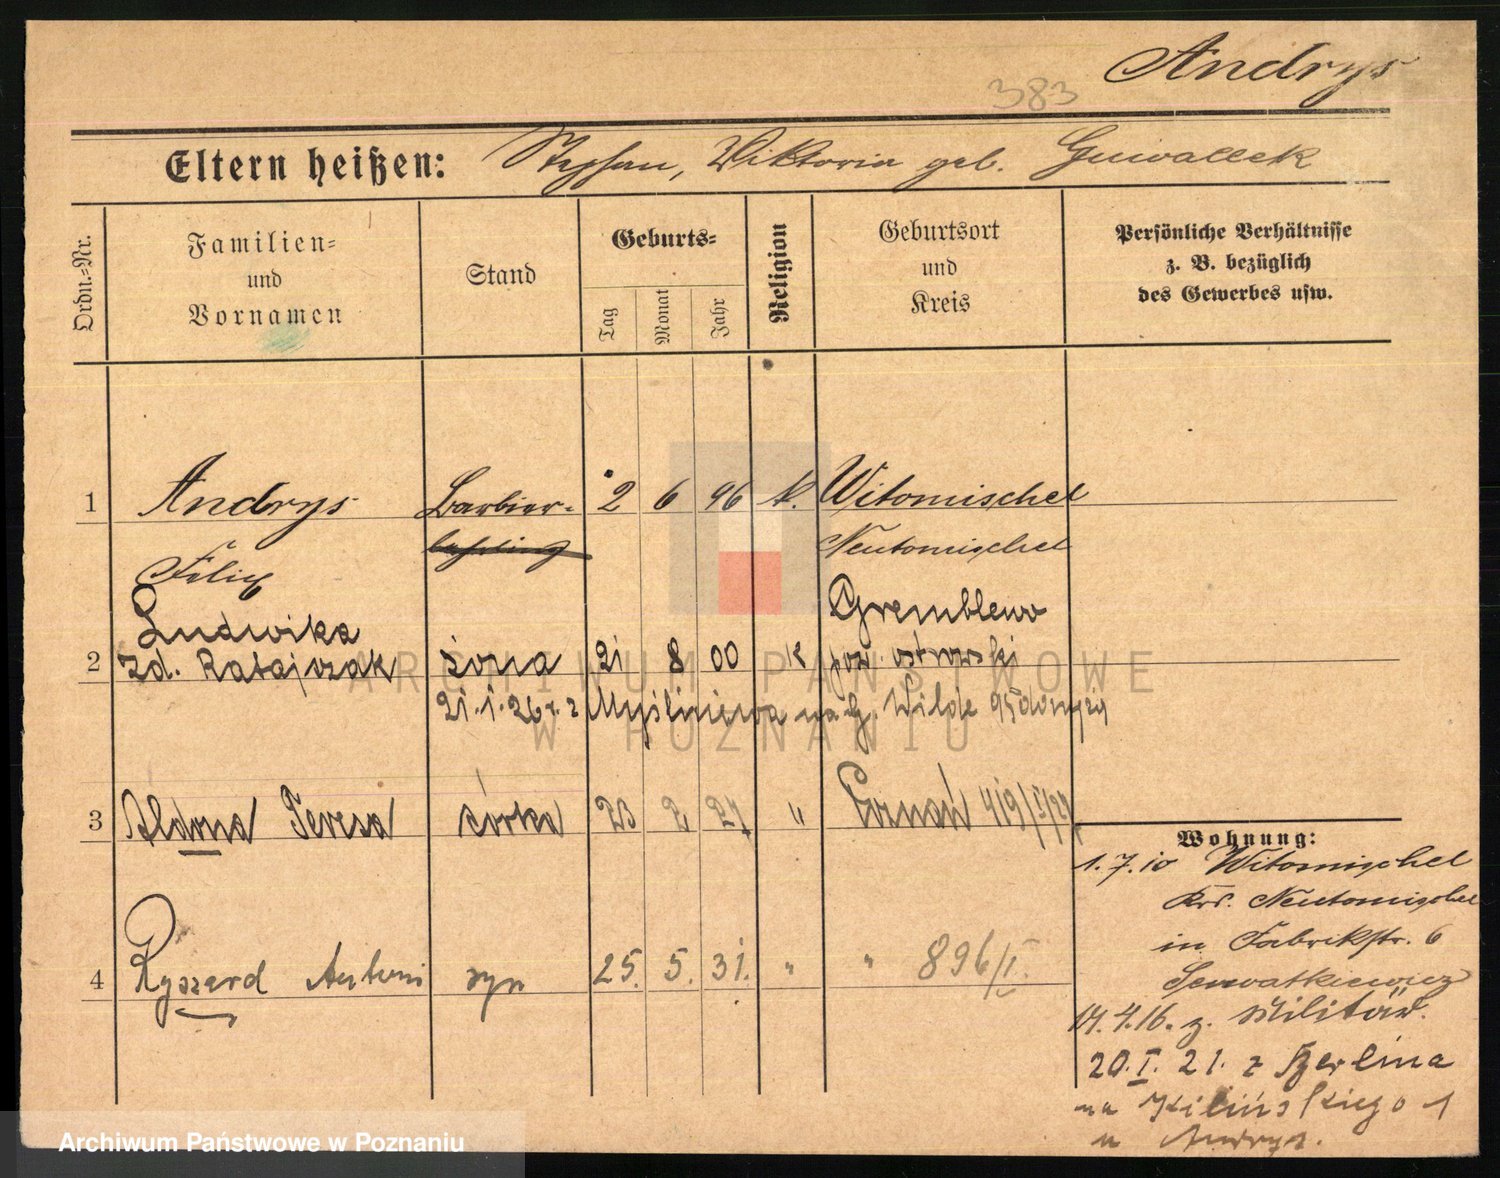 Andrys
383
Eltern heißen: Stephan, Wiktoria geb.
Ordn.=Nr.
Familien=
und
Vornamen
Stand
Geburts=
Tag
Monat
Jahr
Religion
Geburtsort
und
Kreis
Persönliche Verhältnisse
z. B. bezüglich
des Gewerbes usw.
1 Andrys Barbier- 2 6 96 k. Witomischel
Felix lehrling Neutomischel
Ludwika Grembлewo
2 zd. Ratajczak żona 21 8 00 K pow. ostrowski
21.1.26 r. z Myśliniewa na G. Wilde 95
3 Aldona Teresa córka 23 2 27 " Poznań 419/I/27
4 Ryszard Antoni syn 25. 5. 31. " " 896/I.
Wohnung:
1.7.10 Witomischel
Krs. Neutomischel
in Fabrikstr. 6
Serwatkiewicz
14.4.16. z. Militär.
20.I.21. z Berlina
na Kilińskiego 1
u Andrys.
ARCHIWUM PAŃSTWOWE
W POZNANIU
Archiwum Państwowe w Poznaniu